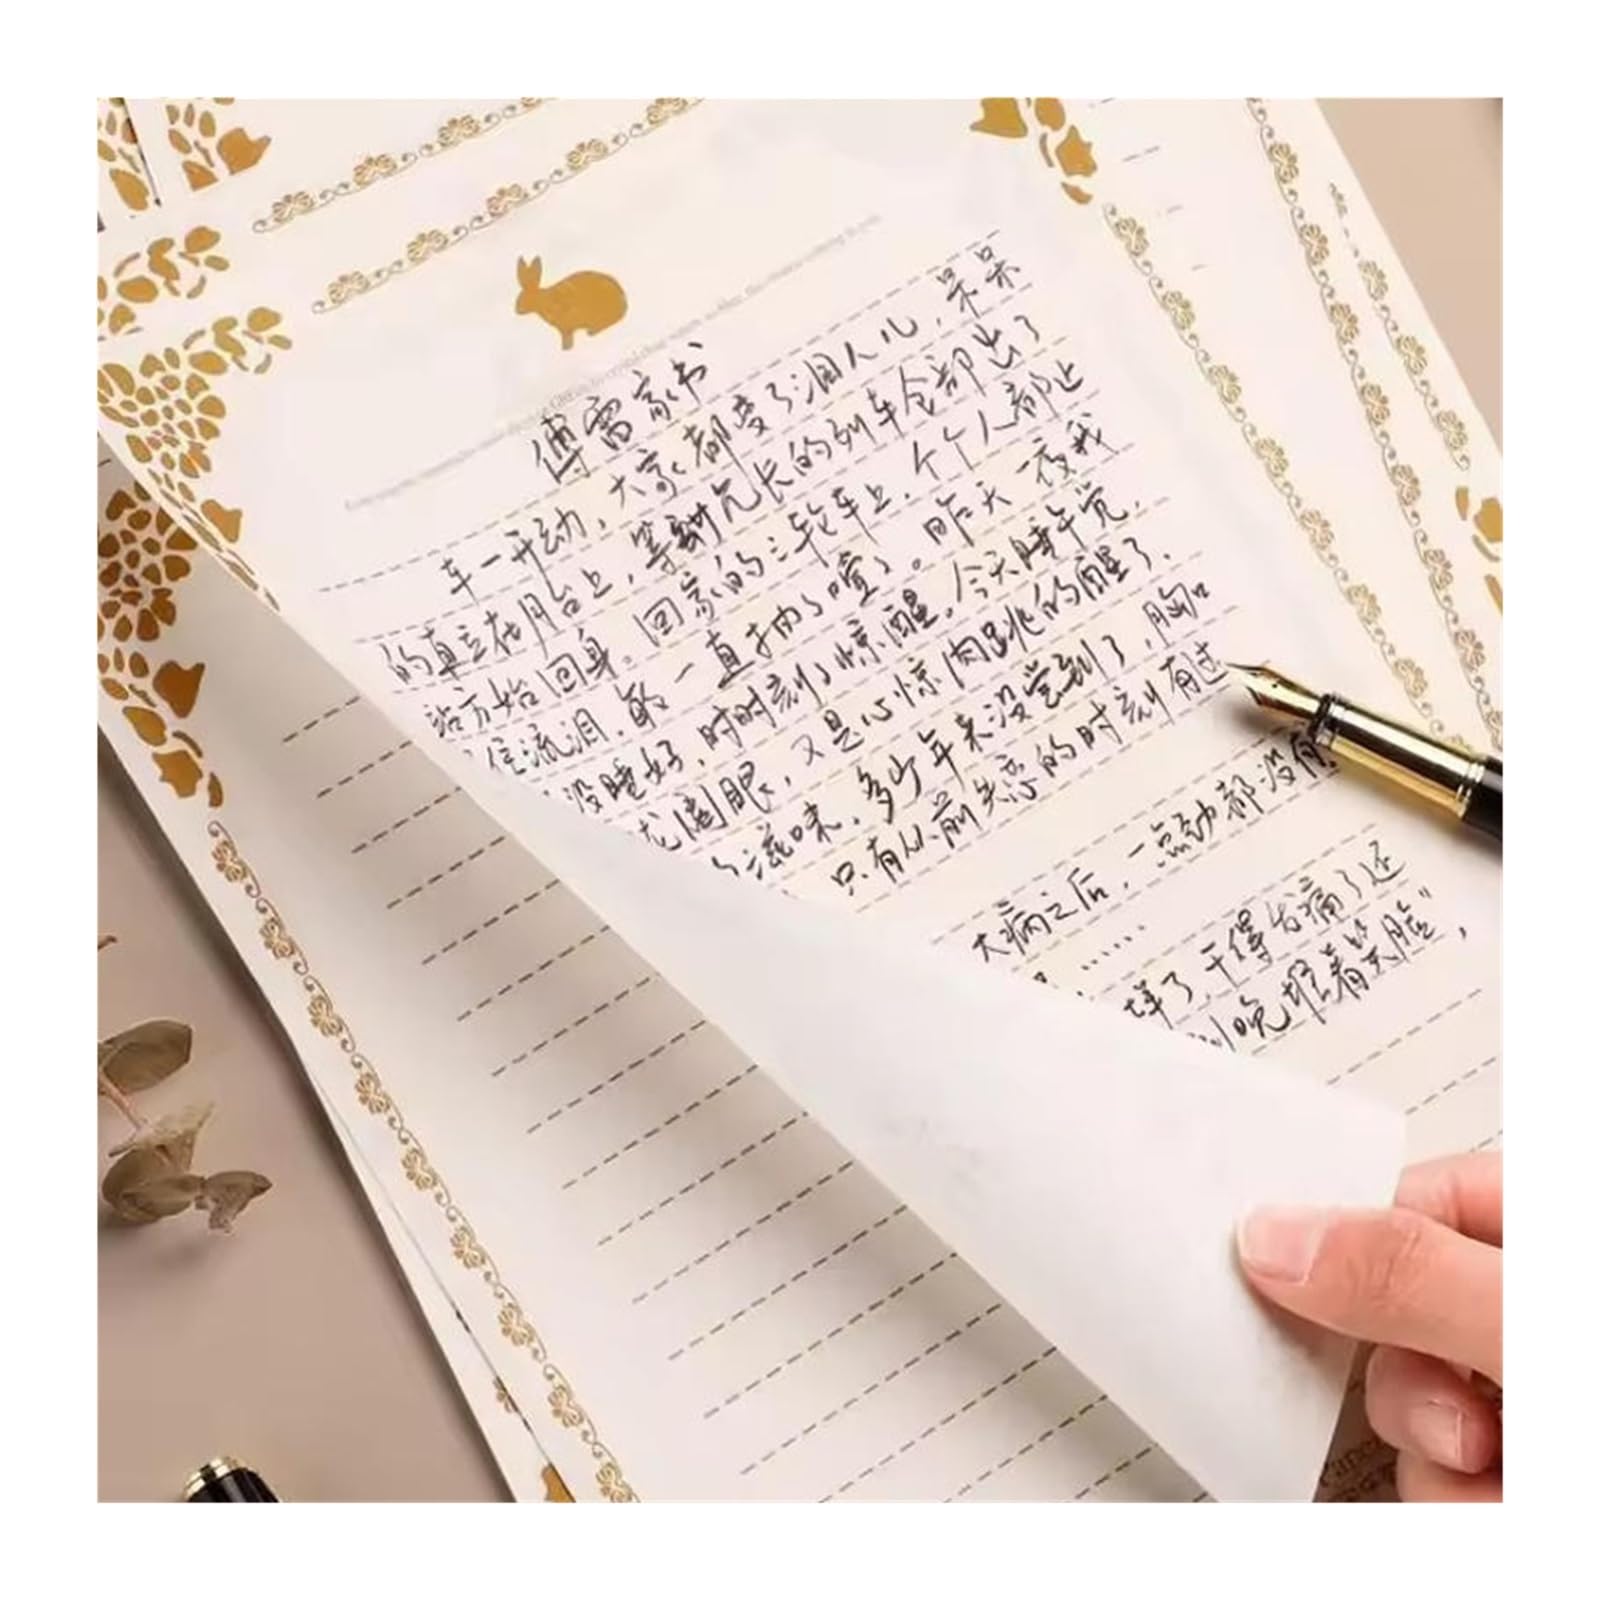 傅雷家书
车一开动，大家都变了泪人儿，呆呆
的直立在月台上，等到冗长的列车全部出了
站方始回身。回家的三轮车上，个个人都止
住流泪。敏一直抽抽噎噎。昨天一夜我
没睡好，时时刻刻惊醒。今天睡午觉，
阖眼，又是心惊肉跳的醒了。
滋味，多少年来没尝到了，胸口
只有从前失恋的时刻有过
大病之后，一点劲都没有
……
样了，干得舌痛了还
到晚堆着笑脸"，